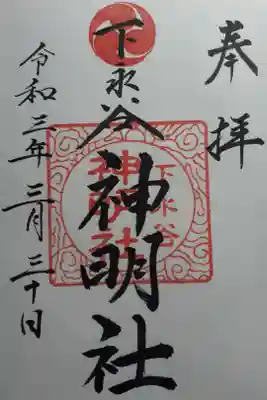 奉拝
下永谷
神明社
令和三年三月三十日
下永谷
神明社